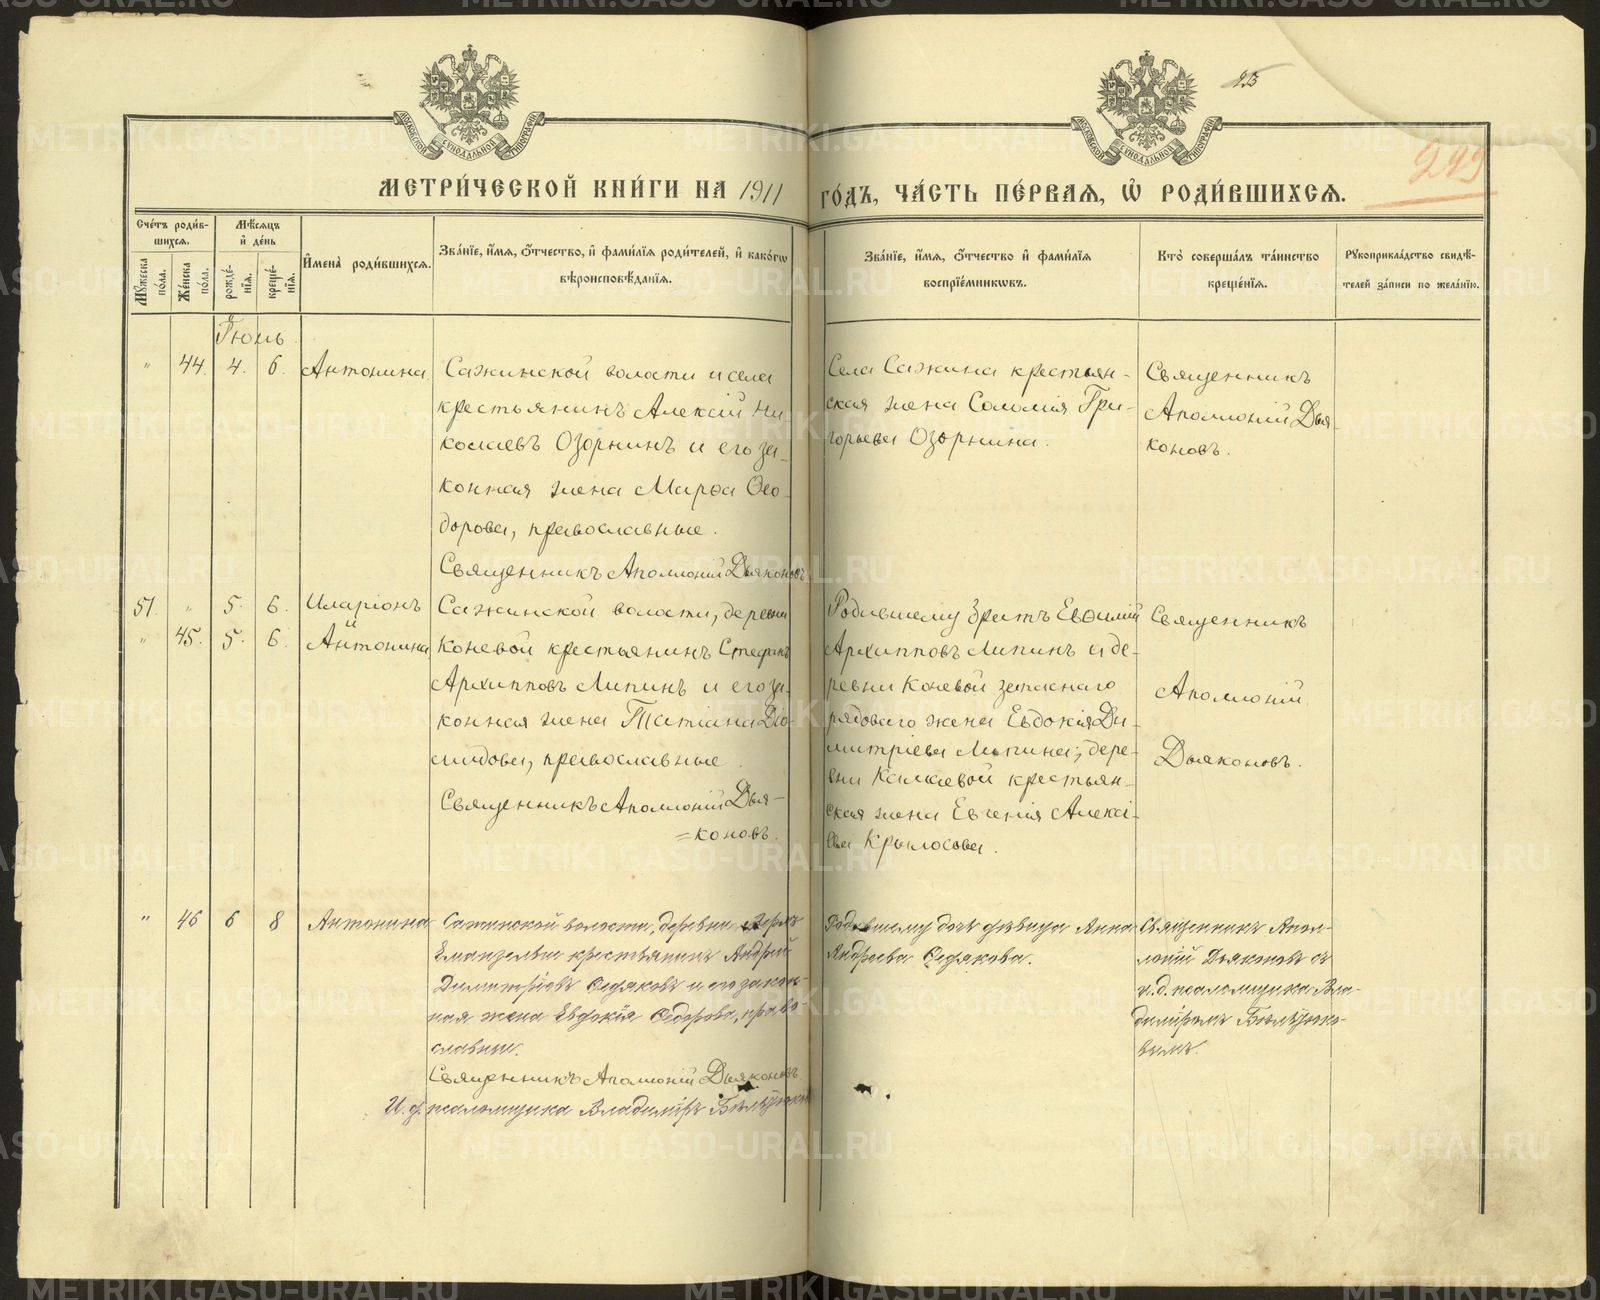 МЕТРИ́ЧЕСКОЙ КНИ́ГИ НА 1911
ГО́ДЪ, ЧА́СТЬ ПЕ́РВАЯ, Ѡ҆ РОДИ́ВШИХСЯ.
Сче́тъ роди́в-
шихся.
Мѣ́сяцъ
и҆ де́нь
Му́жеска по́ла.
Же́нска по́ла.
рожде́-
нїя.
креще́-
нїя.
И҆мена̀ роди́вшихся.
Зва́нїе, и҆́мя, ѻ҆́тчество, и҆ фами́лїя роди́телей, и҆ како́гѡ
вѣроисповѣ́данїя.
Зва́нїе, и҆́мя, ѻ҆́тчество и҆ фами́лїя
воспрїе́мникѡвъ.
Кто̀ соверша́лъ та́инство
креще́нїя.
Рꙋкоприкла́дство свидѣ́-
телей за́писи по жела́нїю.
Іюль.
" 44. 4. 6. Антонина
Сажинской волости и села
крестьянинъ Алексій Ни
колаевъ Озорнинъ и его за-
конная жена Марѳа Ѳео-
дорова, православные.
Священникъ Аполлоній Дьяконовъ
Села Сажина крестьян-
ская жена Соломія Гри-
горьева Озорнина.
Священникъ
Аполлоній Дья-
коновъ.
51. " 5. 6. Иларіонъ
и
" 45. 5. 6. Антонина
Сажинской волости, деревни
Коневой крестьянинъ Стефанъ
Архипповъ Липинъ и его за-
конная жена Татіана Діо-
мидова, православные.
Священникъ Аполлоній Дья-
=коновъ.
Родившему братъ Евѳимій
Архипповъ Липинъ и де-
ревни Коневой запаснаго
рядоваго жена Евдокія Ди-
митріева Липина; дере-
вни Камаевой крестьян-
ская жена Евгенія Алексі-
ева Крылосова.
Священникъ
Аполлоній
Дьяконовъ.
" 46 6 8 Антонина
Сажинской волости, деревни
крестьянинъ Андрей
Димитріевъ Ѳедяковъ и его закон-
ная жена Евдокія Ѳедорова, право-
славные.
Священникъ Аполлоній Дьяконовъ.
И. д. псаломщика Владиміръ
Родившему дочь дѣвица Анна
Андреева Ѳедякова.
Священникъ Апол-
лоній Дьяконовъ съ
и. д. псаломщика Вла-
диміромъ